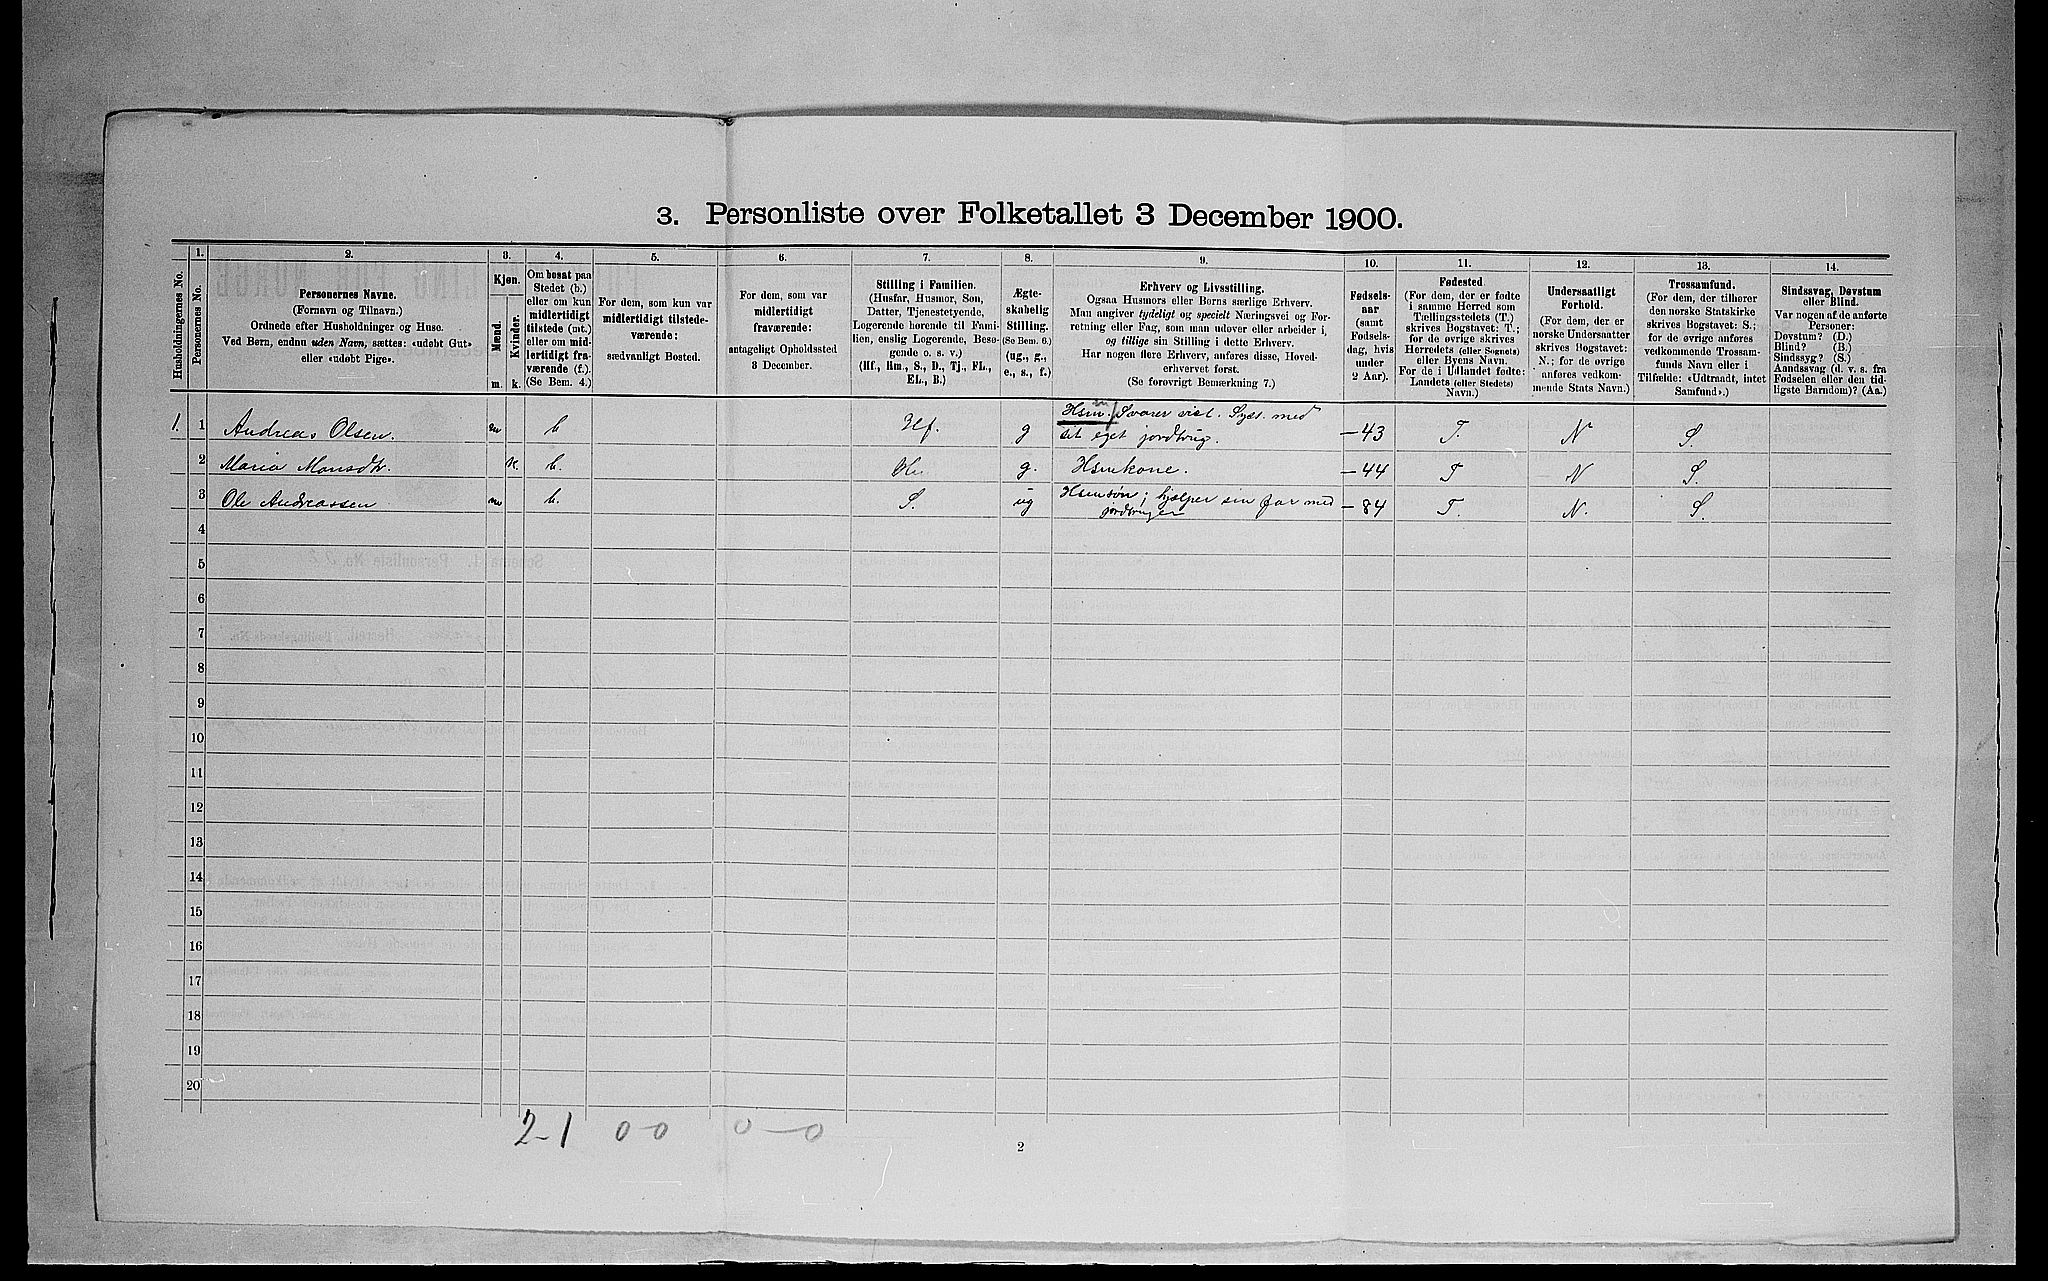 3. Personliste over Folketallet 3 December 1900.
Husholdningernes No.
1.
Personernes No.
2.
Personernes Navne.
(Fornavn og Tilnavn.)
Ordnede efter Husholdninger og Huse.
Ved Børn, endnu uden Navn, sættes: «udøbt Gut»
eller «udøbt Pige».
3.
Kjøn.
Mænd.
Kvinder.
m.
k.
4.
Om bosat paa
Stedet (b.)
eller om kun
midlertidigt
tilstede (mt.)
eller om mid-
lertidigt fra-
værende (f.).
(Se Bem. 4.)
5.
For dem, som kun var
midlertidigt tilstede-
værende:
sædvanligt Bosted.
6.
For dem, som var
midlertidigt
fraværende:
antageligt Opholdssted
3 December.
7.
Stilling i Familien.
(Husfar, Husmor, Søn,
Datter, Tjenestetyende,
Logerende hørende til Fami-
lien, enslig Logerende, Besø-
gende o. s. v.)
(Hf., Hm., S., D., Tj., FL.,
EL., B.)
8.
Ægte-
skabelig
Stilling.
(Se Bem. 6.)
(ug., g.,
e., s., f.)
9.
Erhverv og Livsstilling.
Ogsaa Husmors eller Børns særlige Erhverv.
Man angiver tydeligt og specielt Næringsvei og For-
retning eller Fag, som man udøver eller arbeider i,
og tillige sin Stilling i dette Erhverv.
Har nogen flere Erhverv, anføres disse, Hoved-
erhvervet først.
(Se forøvrigt Bemærkning 7.)
10.
Fødsels-
aar
(samt
Fødsels-
dag, hvis
under
2 Aar).
11.
Fødested.
(For dem, der er fødte
i samme Herred som
Tællingsstedets (T.)
skrives Bogstavet: T.;
for de øvrige skrives
Herredets (eller Sognets)
eller Byens Navn.
For de i Udlandet fødte:
Landets (eller Stedets)
Navn.)
12.
Undersaatligt
Forhold.
(For dem, der er
norske Undersaatter
skrives Bogstavet:
N.; for de øvrige
anføres vedkom-
mende Stats Navn.)
13.
Trossamfund.
(For dem, der tilhører
den norske Statskirke
skrives Bogstavet: S.;
for de øvrige anføres
vedkommende Trossam-
funds Navn eller i
Tilfælde: «Udtraadt, intet
Samfund».)
14.
Sindssvag, Døvstum
eller Blind.
Var nogen af de anførte
Personer:
Døvstum? (D.)
Blind? (B.)
Sindssyg? (S.)
Aandssvag (d. v. s. fra
Fødselen eller den tid-
ligste Barndom)? (Aa.)
1. 1 Andreas Olsen. m b Hf. g Hsm. Svarer vist. Syss. med
sit eget jordbrug. —43 T. N S.
2 Maria Monsdtr. k. b. g. Hsmkone. —44 T N S.
3 Ole Andreassen m b. S. ug Hsmsøn; hjælper sin far med
jordbruget —84 T. N. S.
4
5
6
7
8
9
10
11
12
13
14
15
16
17
18
19
20
2-1 0-0 0-0
2